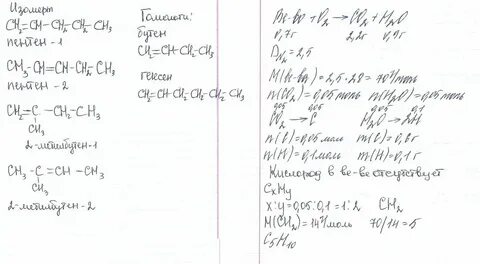 Изомеры
CH₂=CH-CH₂-CH₂-CH₃
пентен-1
CH₃-CH=CH-CH₂-CH₃
пентен-2
CH₂=C-CH₂-CH₃
CH₃
2-метилбутен-1
CH₃-C=CH-CH₃
CH₃
2-метилбутен-2
Гомологи:
бутен
CH₂=CH-CH₂-CH₃
гексен
CH₂=CH-CH₂-CH₂-CH₂-CH₃
В-во+O₂→CO₂+H₂O
0,7г 2,2г 0,9г
D_N₂=2,5
M(в-ва)=2,5·28=70г/моль
n(CO₂)=0,05моль n(H₂O)=0,05моль
0,05 0,05 0,05 0,1
CO₂→C H₂O→2H
n(C)=0,05моль m(C)=0,6г
n(H)=0,1моль m(H)=0,1г
Кислород в ве-ве отсутствует
CxHy
x:y=0,05:0,1=1:2 CH₂
M(CH₂)=14г/моль 70/14=5
C₅H₁₀